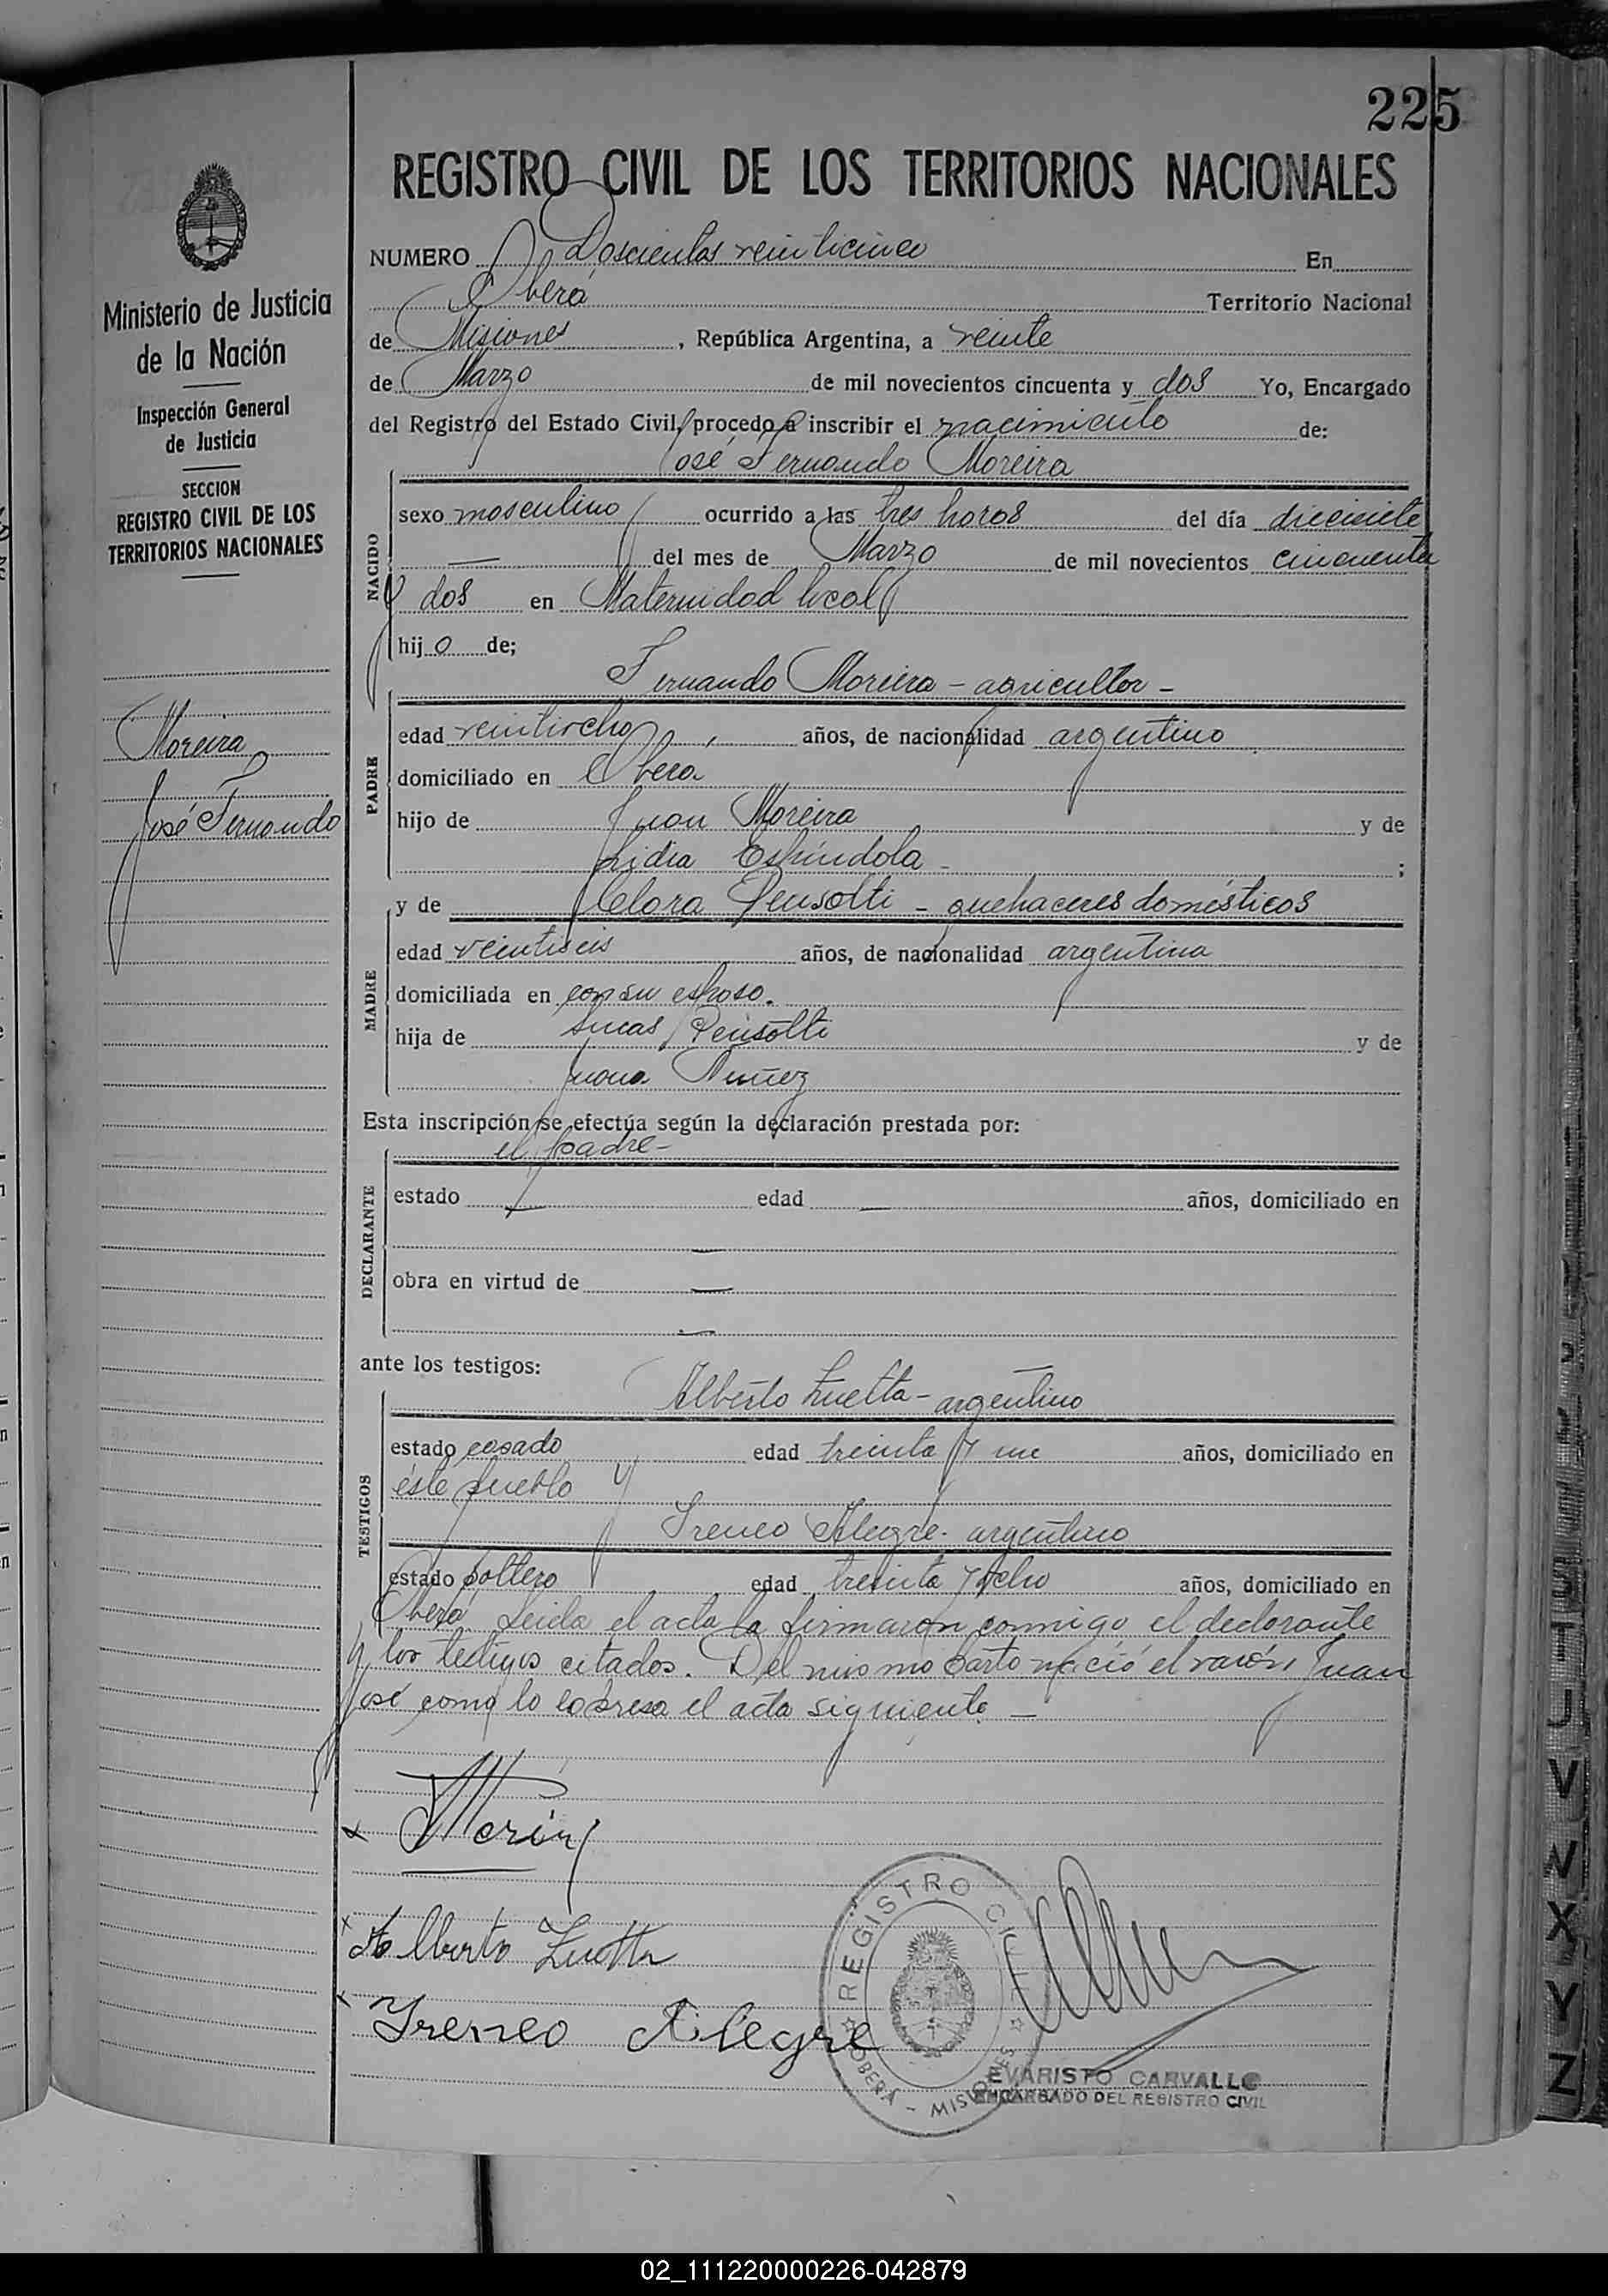 225
REGISTRO CIVIL DE LOS TERRITORIOS NACIONALES
Ministerio de Justicia
de la Nación
Inspección General
de Justicia
SECCION
REGISTRO CIVIL DE LOS
TERRITORIOS NACIONALES
Moreira
José Fernando
NUMERO Doscientos veinticinco En
Oberá Territorio Nacional
de Misiones, República Argentina, a veinte
de Marzo de mil novecientos cincuenta y dos Yo, Encargado
del Registro del Estado Civil, procedo a inscribir el nacimiento de:
José Fernando Moreira
NACIDO
sexo masculino ocurrido a las tres horas del día diecisiete
— del mes de Marzo de mil novecientos cincuenta
y dos en Maternidad local
hijo de;
Fernando Moreira - agricultor -
PADRE
edad veintiocho años, de nacionalidad argentino
domiciliado en Oberá
hijo de Juan Moreira y de
Lidia Espíndola - ;
y de Clara Pensotti - quehaceres domésticos
MADRE
edad veintiseis años, de nacionalidad argentina
domiciliada en con su esposo.
hija de Lucas Pensotti y de
Juana Nuñez
Esta inscripción se efectúa según la declaración prestada por:
el padre -
DECLARANTE
estado — edad — años, domiciliado en
—
obra en virtud de —
—
ante los testigos:
Alberto Zuetta - argentino
TESTIGOS
estado casado edad treinta y un años, domiciliado en
éste pueblo y
Ireneo Alegre - argentino
estado soltero edad treinta y ocho años, domiciliado en
Oberá. Leida el acta la firmaron conmigo el declarante
y los testigos citados. Del mismo parto nació el varón Juan
José como lo expresa el acta siguiente -
x
x Alberto Zuetta
x Ireneo Alegre
REGISTRO CIVIL
OBERÁ - MISIONES
EVARISTO CARVALLO
ENCARGADO DEL REGISTRO CIVIL
U
V
W
X
Y
Z
02_111220000226-042879